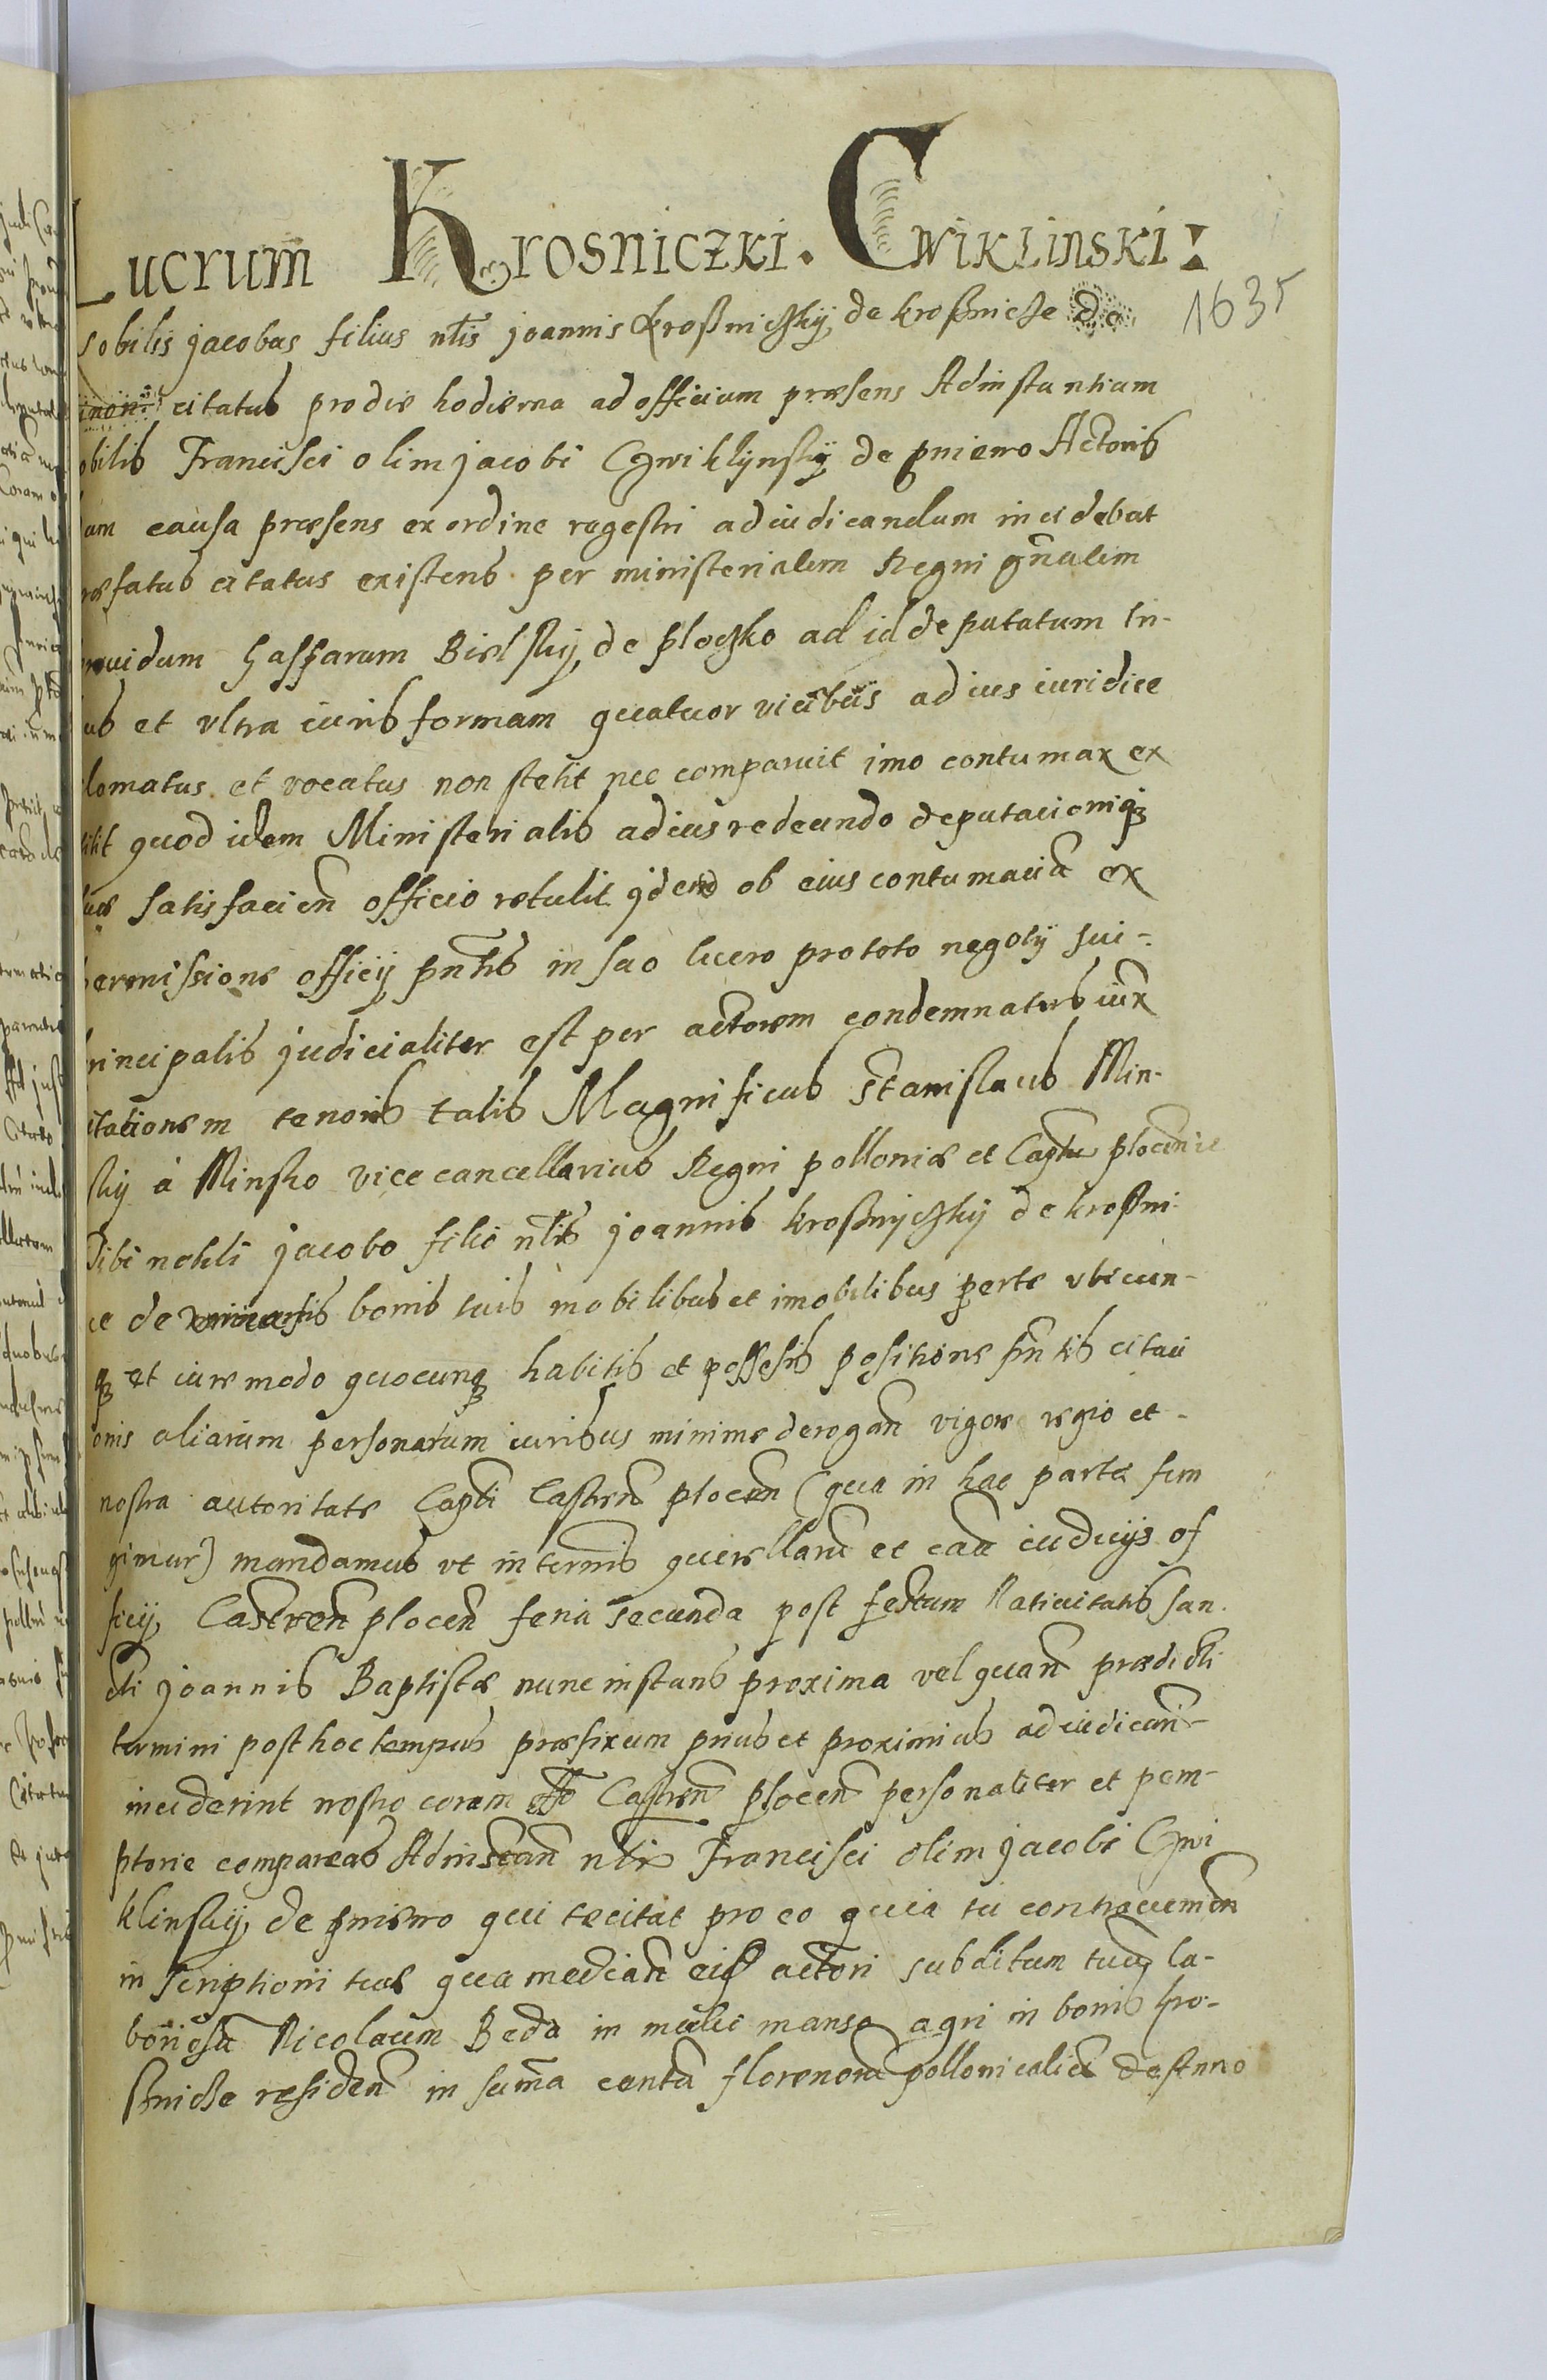 Lucrum Krosniczki. Cwiklinski:
1635
Nobilis Jacobus filius nlis Joannis Kroßniczkij de kroßnicze
citatus pro die hodierna ad officium præsens Ad instantiam
obilis Francisci olim Jacobi Czwiklijnskij de pniewo Actoris
dum causa præsens ex ordine regestri adiudicandum incidebat
ræfatus citatus existens per ministerialem Regni gñalem
rouidum Gasparum Bielskij de ploczko ad id deputatum tri-
us et vltra iuris formam quatuor vicibus ad ius iuridice
clamatus et vocatus non stetit nec comparuit imo contumax ex
titit quod idem Ministerialis ad ius redeundo deputacioniqꝫ
suæ satisfacien̄ officio retulit ob eius contumaciā ex
permissione officij pn̄tis in suo lucro pro toto negotij sui-
rincipalis judicialiter est per actorem condemnatus iux
citationem tenoris talis Magnificus Stanislaus Min-
skij á Minsko vicecancellarius Regni polloniæ et Captu plocen̄
Tibi nobili Jacobo filio nlis Joannis kroßnijczkij de kroßni-
ce de bonis tuis mobilibus et imobilibus perte vbicun-
qꝫ et iure modo quocunqꝫ habitis et possessis positione pn̄tis citaci
onis aliarum personarum iuribus minime derogan̄ vigore regio et-
nostra autoritate Capti Castren̄ plocen̄ (qua in hac parte fun
gimur) mandamus vt in termis querellarū et eaū iudicijs of
ficij Castren̄ plocen̄ feria secunda post festum Natiuitatis San-
cti Joannis Baptistæ nunc instans proxima vel quan̄ prædicti
termini post hoc tempus præfixum prius et proximius adiudican̄-
inciderint nostro coram offo Castren̄ plocen̄ personaliter et pem-
ptorie compareas Ad instan̄ nlis Francisci olim Jacobi Czwi
klinskij de pniewo qui te citat pro eo quia tu contrauenien̄
inscriptioni tuæ qua median̄ eid actori subditum tuū la-
boriosū Nicolaum Beda in medio manso agri in bonis kro-
ßnicze residen̄ in summa centū florenorū pollonicaliū